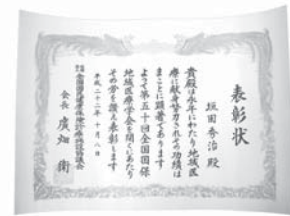 表彰状
垣田秀治 殿
貴殿は永年にわたり地域医
療に献身努力されその功績は
まことに顕著であります
よって第五十回全国国保
地域医療学会を開くにあたり
その労を讃え表彰します
平成二十二年十月八日
全国国民健康保険診療施設協議会
会長 廣畑 衛